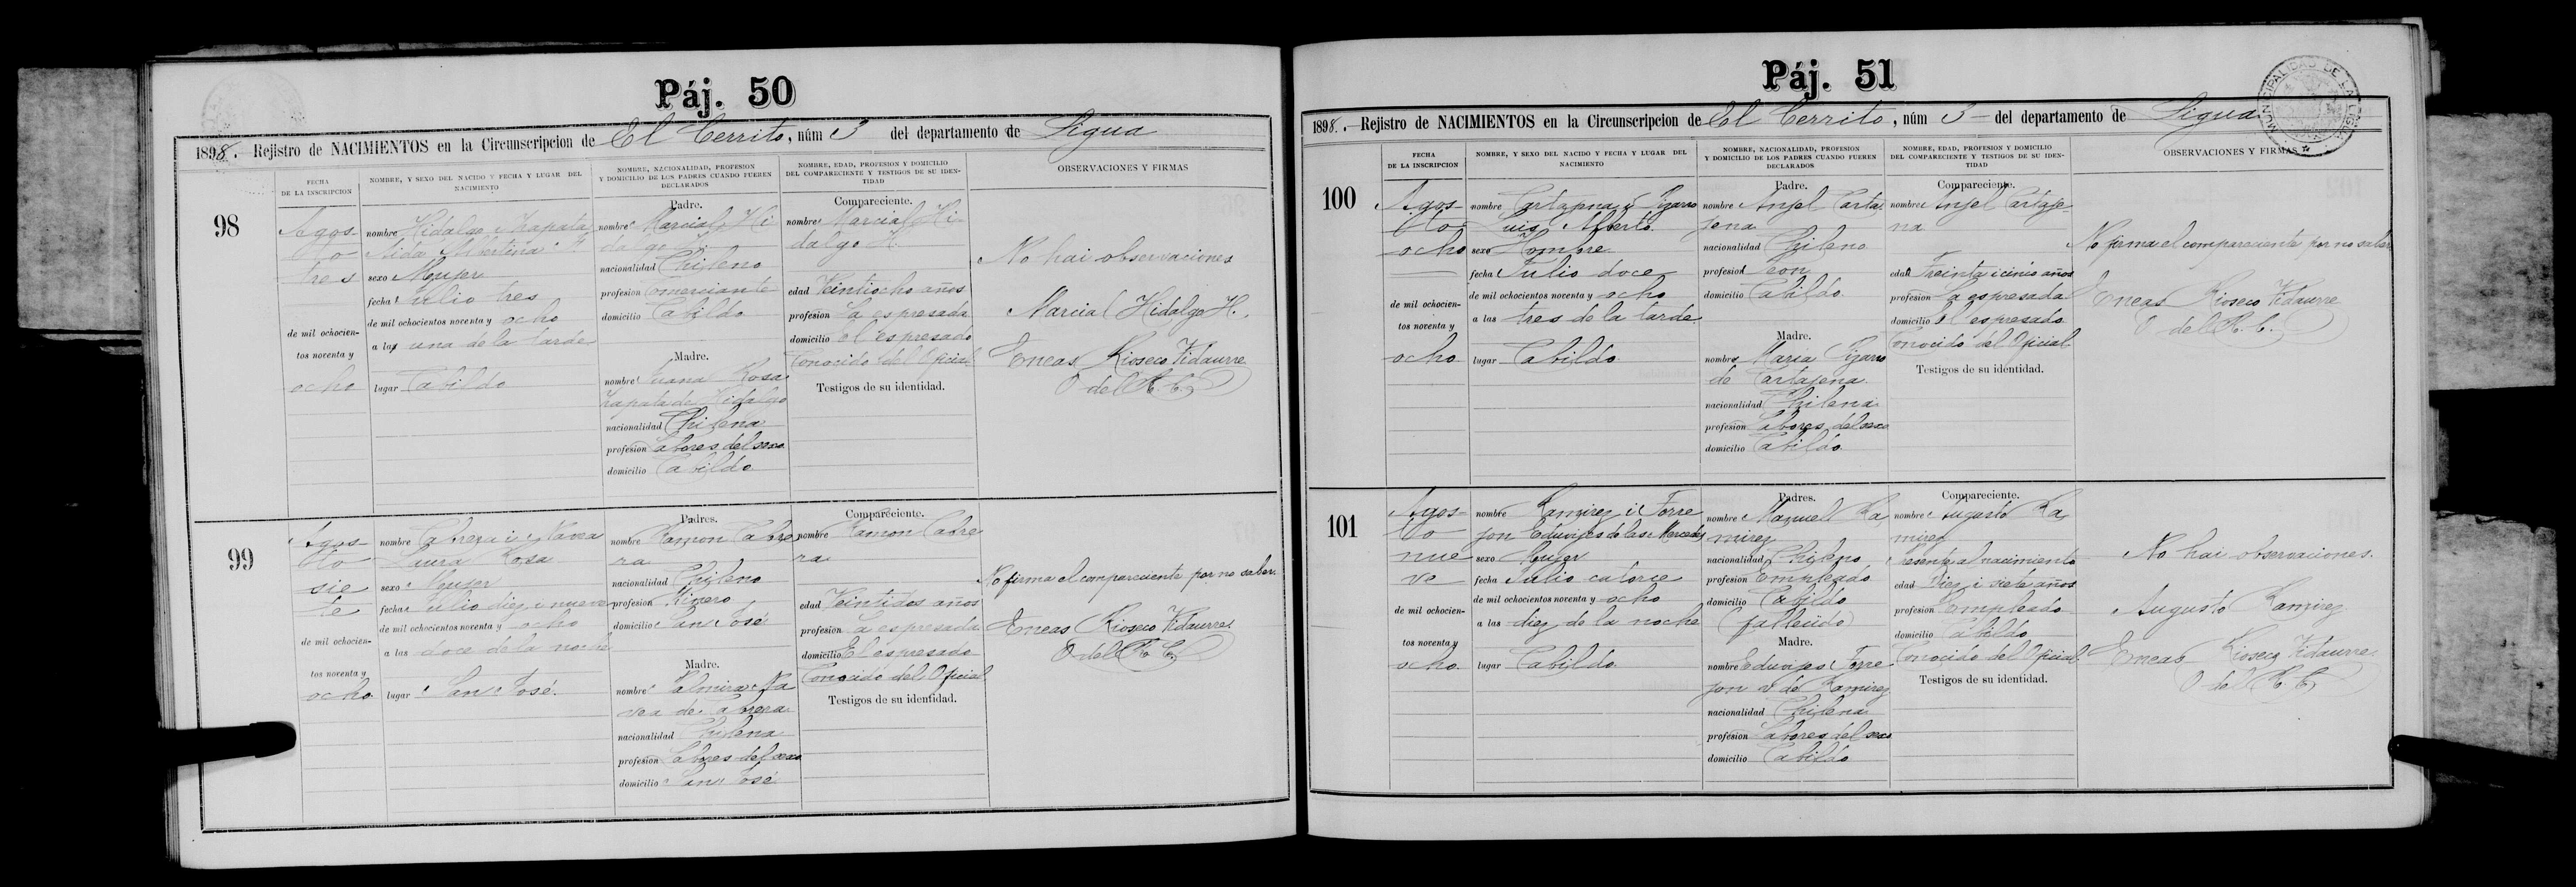 Páj. 50
1898. Rejistro de NACIMIENTOS en la Circunscripcion de El Cerrito, núm 3 del departamento de Ligua
FECHA
DE LA INSCRIPCION
NOMBRE, Y SEXO DEL NACIDO Y FECHA Y LUGAR DEL
NACIMIENTO
NOMBRE, NACIONALIDAD, PROFESION
Y DOMICILIO DE LOS PADRES CUANDO FUEREN
DECLARADOS
NOMBRE, EDAD, PROFESION Y DOMICILIO
DEL COMPARECIENTE Y TESTIGOS DE SU IDEN-
TIDAD
OBSERVACIONES Y FIRMAS
98
Agos-
to
tres
de mil ochocien-
tos noventa y
ocho
nombre Hidalgo i Zapata
Aida
sexo Mujer
fecha Julio tres
de mil ochocientos noventa y ocho
a las una de la tarde
lugar Cabildo
Padre.
nombre Marcial Hi
dalgo H.
nacionalidad Chileno
profesion Comerciante
domicilio Cabildo
Madre.
nombre Juana Rosa
Zapata de Hidalgo
nacionalidad Chilena
profesion Labores del sexo
domicilio Cabildo
Compareciente.
nombre Marcial Hi
dalgo H.
edad Veintiocho años
profesion La espresada
domicilio el espresado
Conocido del Oficial
Testigos de su identidad.
No hai observaciones
Marcial Hidalgo H.
Eneas Rioseco Vidaurre
O del R. C.
99
Agos-
to
sie
te
de mil ochocien-
tos noventa y
ocho
nombre Cabrera i Navea
Laura Rosa
sexo Mujer
fecha Julio diez i nueve
de mil ochocientos noventa y ocho
a las doce de la noche
lugar San José.
Padres.
nombre Ramon Cabre
ra
nacionalidad Chileno
profesion Minero
domicilio San José
Madre.
nombre Palmira Na
vea de Cabrera
nacionalidad Chilena
profesion Labores del sexo
domicilio San José
Compareciente.
nombre Ramon Cabre
ra
edad Veintidos años
profesion La espresada
domicilio El espresado
Conocido del Oficial
Testigos de su identidad.
No firma el compareciente por no saber.
Eneas Rioseco Vidaurre
O del R. C.
Páj. 51
MUNICIPALIDAD DE LA LIGUA
1898. Rejistro de NACIMIENTOS en la Circunscripcion de El Cerrito, núm 3 del departamento de Ligua
FECHA
DE LA INSCRIPCION
NOMBRE, Y SEXO DEL NACIDO Y FECHA Y LUGAR DEL
NACIMIENTO
NOMBRE, NACIONALIDAD, PROFESION
Y DOMICILIO DE LOS PADRES CUANDO FUEREN
DECLARADOS
NOMBRE, EDAD, PROFESION Y DOMICILIO
DEL COMPARECIENTE Y TESTIGOS DE SU IDEN-
TIDAD
OBSERVACIONES Y FIRMAS
100
Agos-
to
ocho
de mil ochocien-
tos noventa y
ocho
nombre Cartajena i Pizarro
Luis Alberto.
sexo Hombre
fecha Julio doce
de mil ochocientos noventa y ocho
a las tres de la tarde
lugar Cabildo
Padre.
nombre Anjel Carta
jena
nacionalidad Chileno
profesion Peon
domicilio Cabildo
Madre.
nombre Maria Pizarro
de Cartajena.
nacionalidad Chilena
profesion Labores del sexo
domicilio Cabildo
Compareciente.
nombre Anjel Cartaje
na
edad Treinta i cinco años
profesion La espresada
domicilio el espresado
Conocido del Oficial
Testigos de su identidad.
No firma el compareciente por no saber
Eneas Rioseco Vidaurre
O del R. C.
101
Agos-
to
nue
ve
de mil ochocien-
tos noventa y
ocho
nombre Ramirez i Torre
jon Eduvijes de las Mercedes
sexo Mujer
fecha Julio catorce
de mil ochocientos noventa y ocho
a las diez de la noche
lugar Cabildo
Padres.
nombre Manuel Ra
mirez
nacionalidad Chileno
profesion Empleado
domicilio Cabildo
(fallecido)
Madre.
nombre Eduvijes Torre
jon v de Ramirez
nacionalidad Chilena
profesion Labores del sexo
domicilio Cabildo
Compareciente.
nombre Augusto Ra
mirez
Presente al nacimiento
edad Diez i siete años
profesion Empleado
domicilio Cabildo
Conocido del Oficial
Testigos de su identidad.
No hai observaciones.
Augusto Ramirez
Eneas Rioseco Vidaurre
O del R. C.